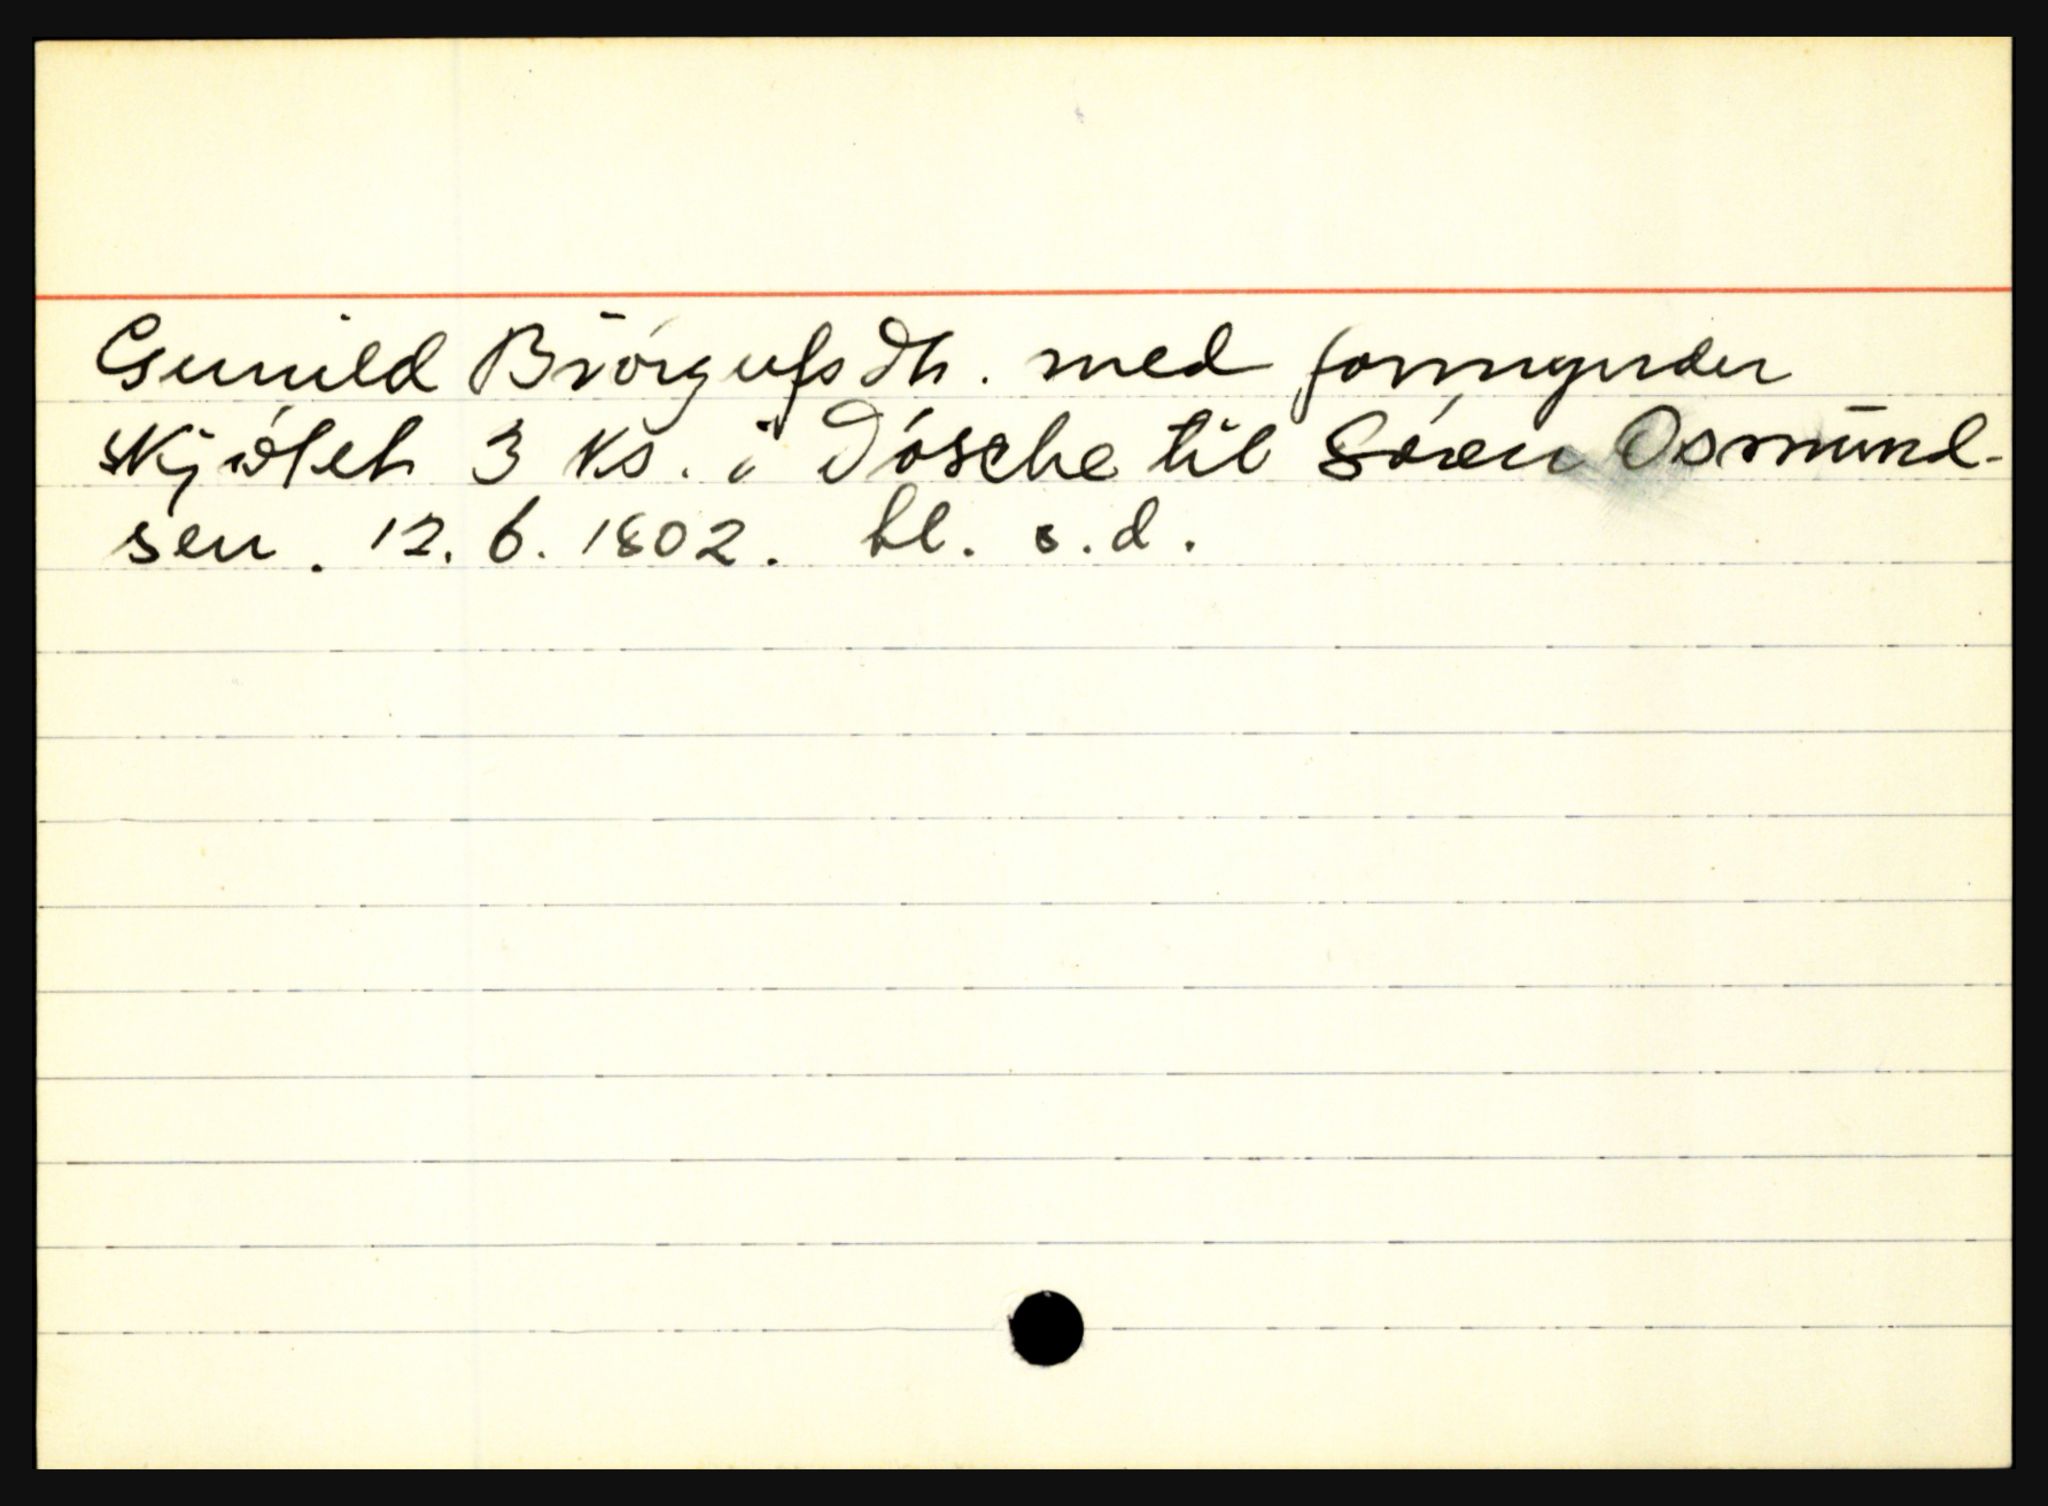 Gunild Biörgufs Dtr. med formynder
skjötet 3 ks. i Dösche til Sören Osmund-
sen. 12.6.1802. tl. s.d.